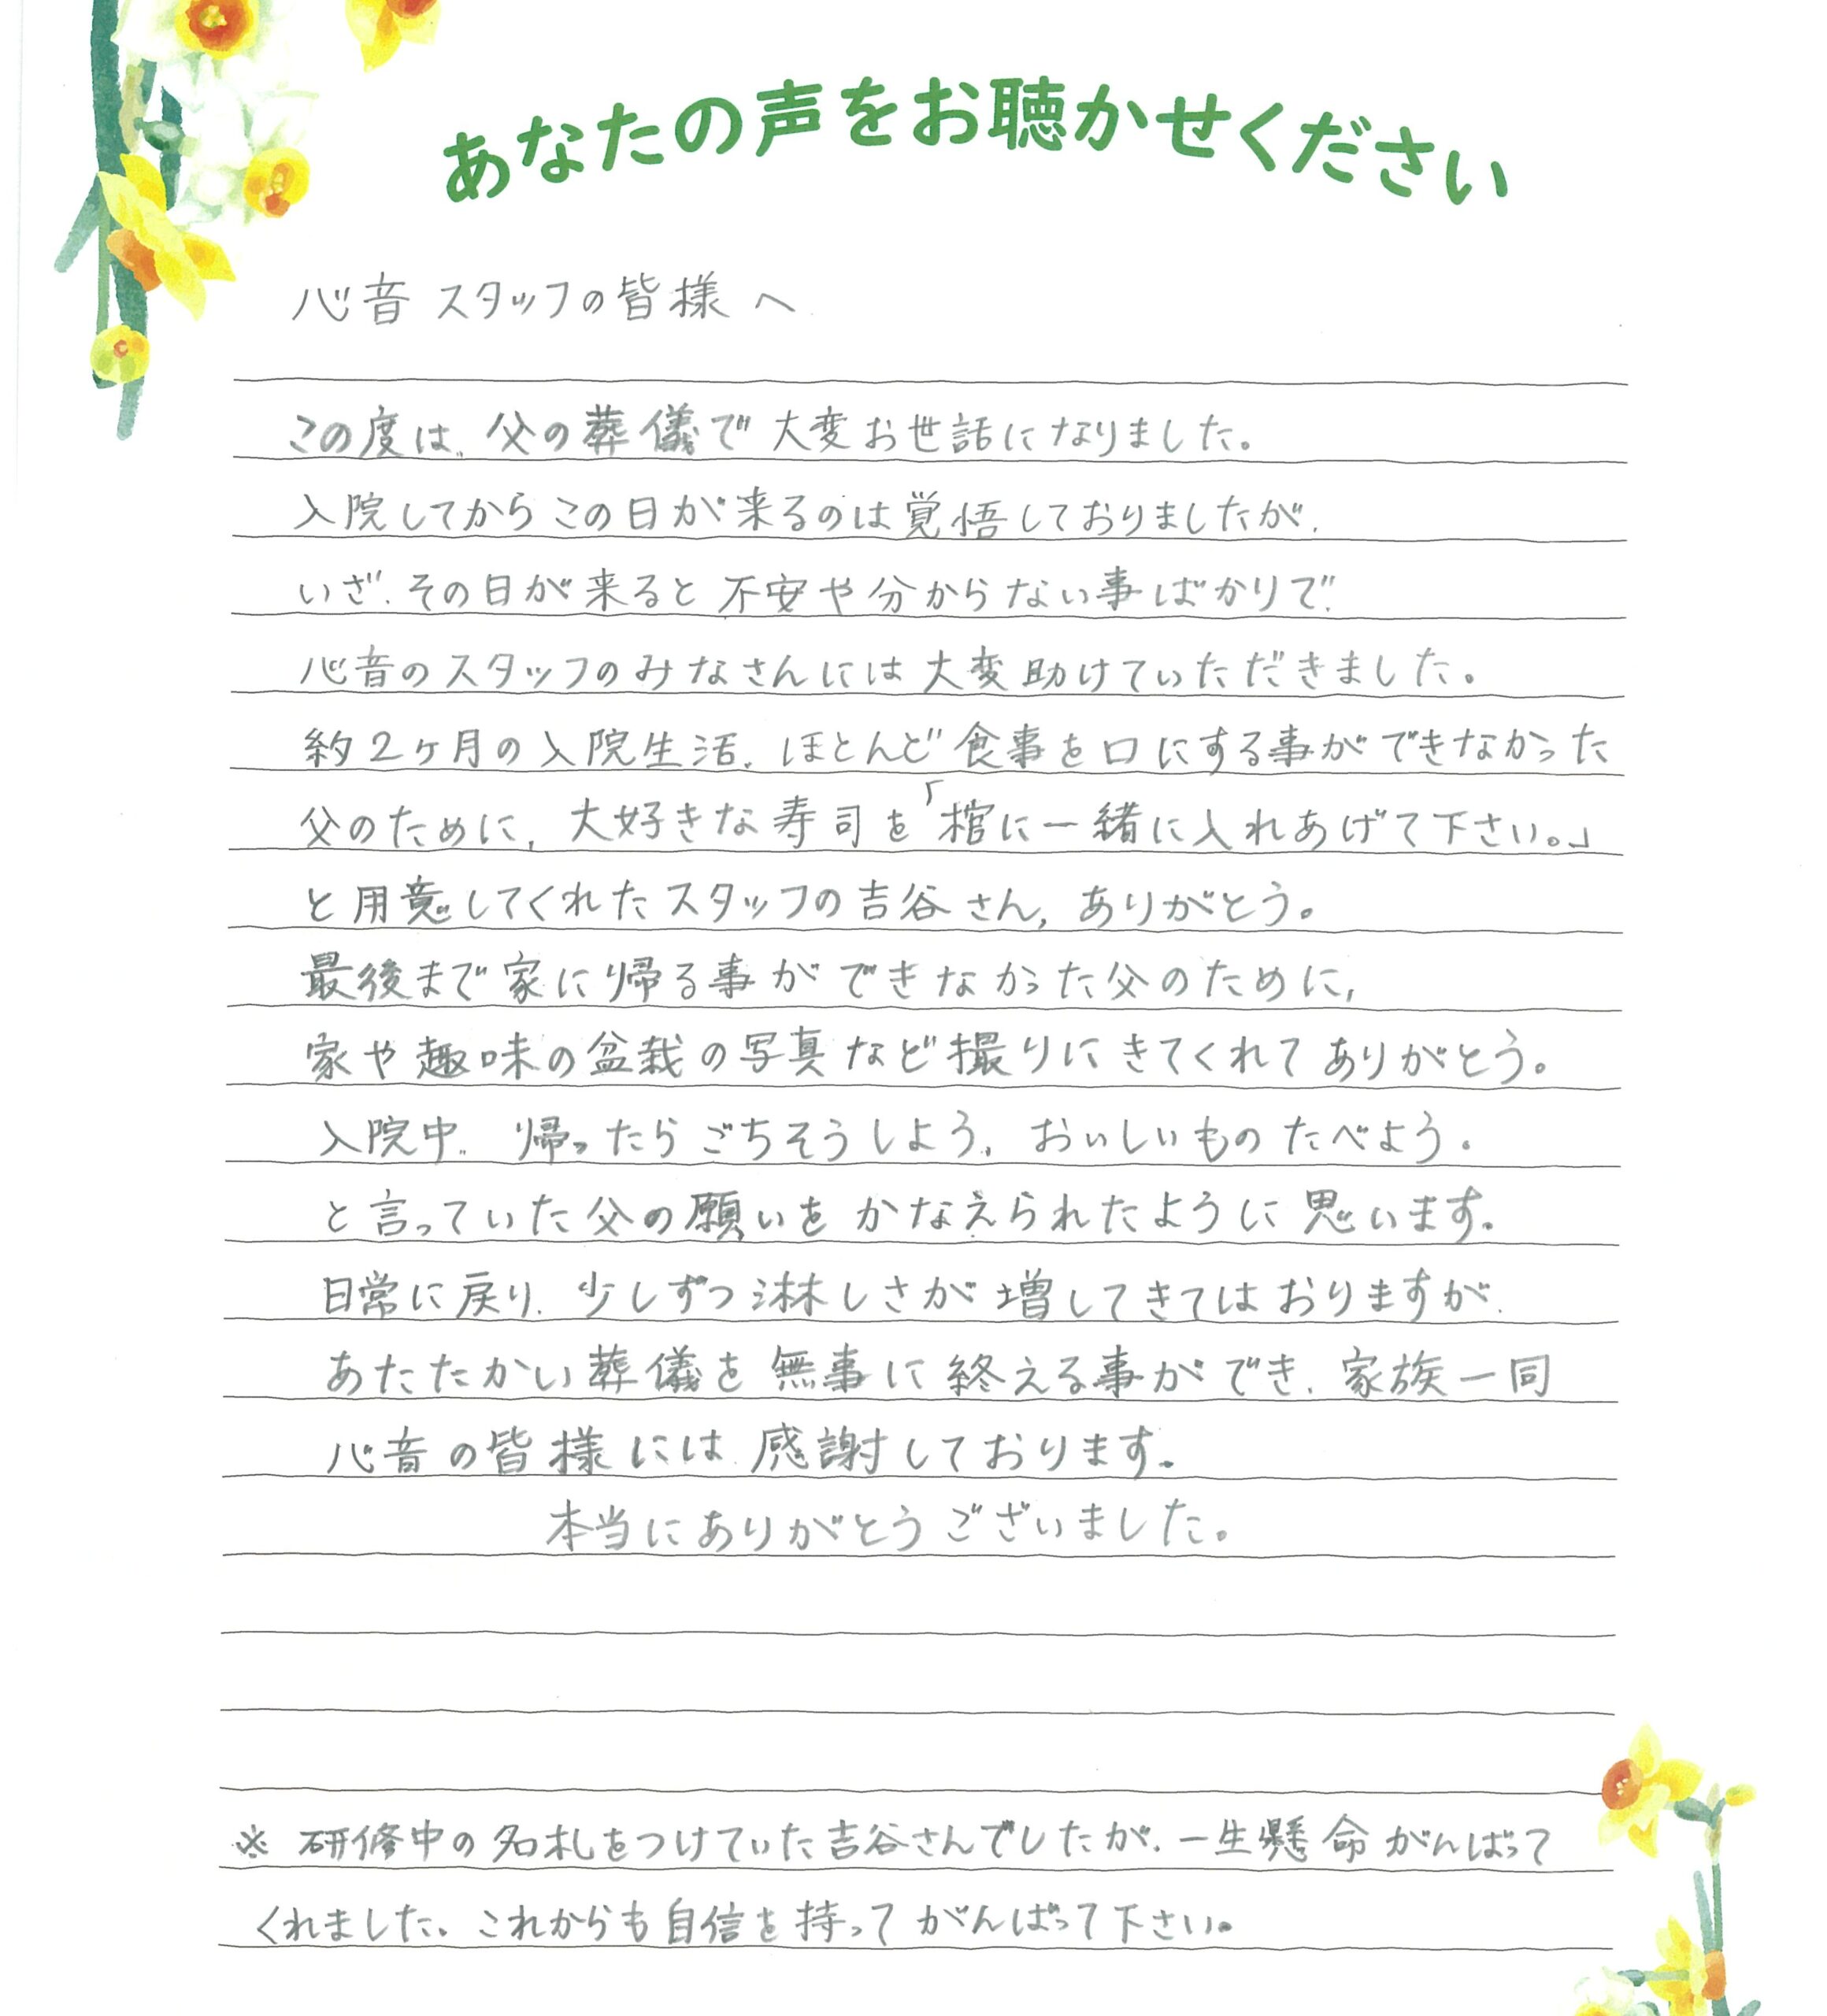 あなたの声をお聴かせください
心音 スタッフの皆様へ
この度は、父の葬儀で大変お世話になりました。
入院してからこの日が来るのは覚悟しておりましたが、
いざ、その日が来ると不安や分からない事ばかりで、
心音のスタッフのみなさんには大変助けていただきました。
約2ヶ月の入院生活、ほとんど食事を口にする事ができなかった
父のために、大好きな寿司を「「棺に一緒に入れあげて下さい。」
と用意してくれたスタッフの吉谷さん、ありがとう。
最後まで家に帰る事ができなかった父のために、
家や趣味の盆栽の写真など撮りにきてくれてありがとう。
入院中、帰ったらごちそうしよう、おいしいものたべよう。
と言っていた父の願いをかなえられたように思います。
日常に戻り、少しずつ淋しさが増してきてはおりますが、
あたたかい葬儀を無事に終える事ができ、家族一同
心音の皆様には感謝しております。
本当にありがとうございました。
※ 研修中の名札をつけていた吉谷さんでしたが、一生懸命がんばって
くれました。これからも自信を持ってがんばって下さい。